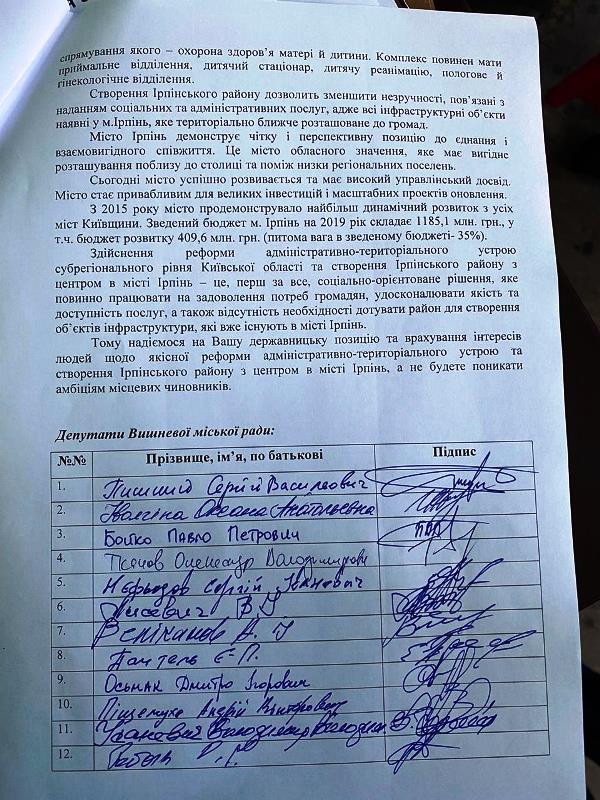 спрямування якого – охорона здоров’я матері й дитини. Комплекс повинен мати
приймальне відділення, дитячий стаціонар, дитячу реанімацію, пологове й
гінекологічне відділення.
Створення Ірпінського району дозволить зменшити незручності, пов’язані з
наданням соціальних та адміністративних послуг, адже всі інфраструктурні об’єкти
наявні у м.Ірпінь, яке територіально ближче розташоване до громад.
Місто Ірпінь демонструє чітку і перспективну позицію до єднання і
взаємовигідного співжиття. Це місто обласного значення, яке має вигідне
розташування поблизу до столиці та поміж низки регіональних поселень.
Сьогодні місто успішно розвивається та має високий управлінський досвід.
Місто стає привабливим для великих інвестицій і масштабних проектів оновлення.
З 2015 року місто продемонструвало найбільш динамічний розвиток з усіх
міст Київщини. Зведений бюджет м. Ірпінь на 2019 рік складає 1185,1 млн. грн., у
т.ч. бюджет розвитку 409,6 млн. грн. (питома вага в зведеному бюджеті- 35%).
Здійснення реформи адміністративно-територіального устрою
субрегіонального рівня Київської області та створення Ірпінського району з
центром в місті Ірпінь – це, перш за все, соціально-орієнтоване рішення, яке
повинно працювати на задоволення потреб громадян, удосконалювати якість та
доступність послуг, а також відсутність необхідності дотувати район для створення
об’єктів інфраструктури, які вже існують в місті Ірпінь.
Тому надіємося на Вашу державницьку позицію та врахування інтересів
людей щодо якісної реформи адміністративно-територіального устрою та
створення Ірпінського району з центром в місті Ірпінь, а не будете поникати
амбіціям місцевих чиновників.
Депутати Вишневої міської ради:
№№ Прізвище, ім’я, по батькові Підпис
1. Сергій Васильович
2. Оксана Анатольевна
3. Бойко Павло Петрович
4. Олександр Володимирович
5. Нефьодов Сергій Іванович
6. Лисевич В
7. А.
8. Є.П.
9. Осьмак Дмитро Ігорович
10. Андрій Вікторович
11. Володимир
12.